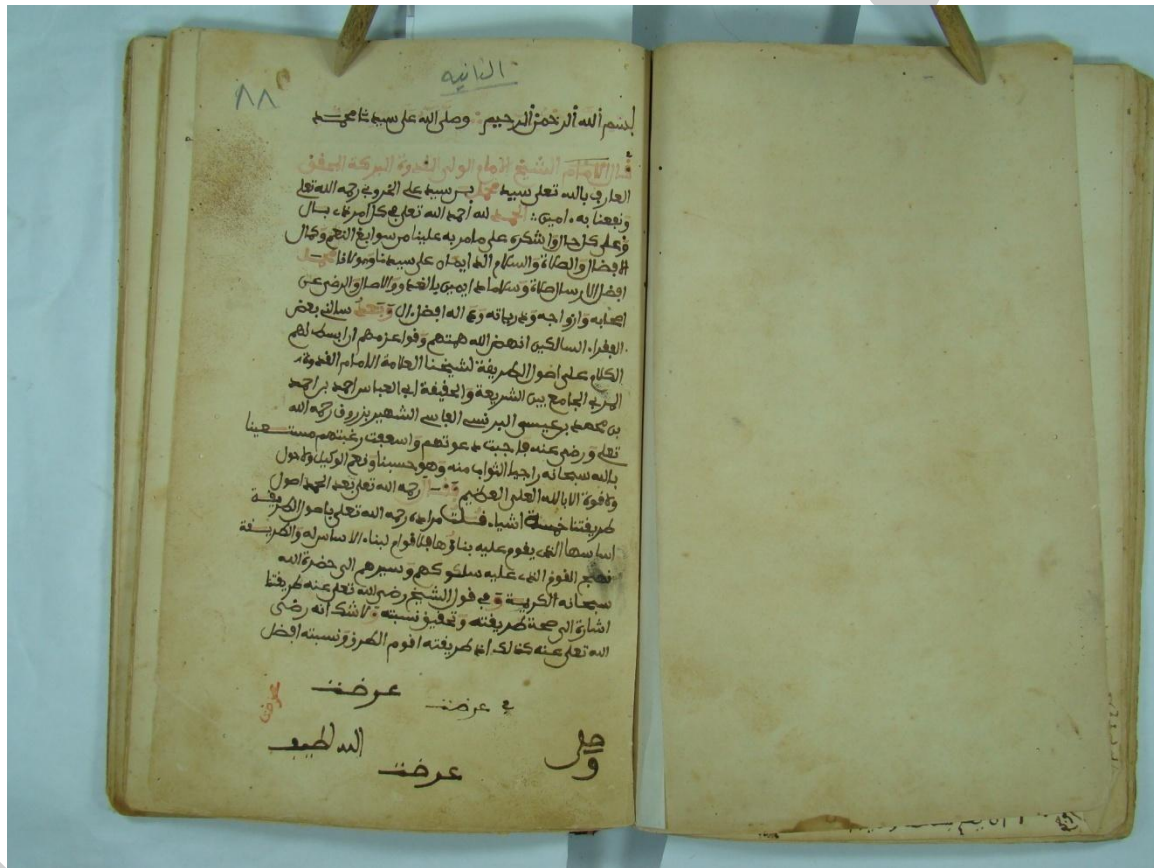 الثانيه
٨٨
بسم الله الرحمن الرحيم وصلى الله على سيدنا محمد
قال الشيخ الامام الولي القدوة البركة المحقق
العارف بالله تعلى سيدي محمد بن سيدي علي الخروبي رحمه الله تعلى
ونفعنا به امين الحمد لله احمد الله تعلى في كل امر ذي بال
وعلى كل حال واشكره على ما من به علينا من سوابغ النعم وكمال
الافضال والصلاة والسلام الدايمان على سيدنا ومولانا محمد
افضل الارسال صلاة وسلاما دايمين بالغدو والاصال والرضى عن
اصحابه وازواجه وذرياته وءاله افضل ءال وبعد سالني بعض
الفقراء السالكين انهض الله همتهم وقوا عزمهم ان ابسط لهم
الكلام على اصول الطريقة لشيخنا العلامة الامام القدوة
المربي الجامع بين الشريعة والحقيقة ابي العباس احمد بن احمد
بن محمد بن عيسى البرنسي الفاسي الشهير بزروق رحمه الله
تعلى ورضي عنه فاجبت دعوتهم واسعفت رغبتهم مستعينا
بالله سبحانه راجيا الثواب منه وهو حسبنا ونعم الوكيل ولا حول
ولا قوة الا بالله العلي العظيم قال رحمه الله تعلى بعد الحمد اصول
طريقتنا خمسة اشياء قلت مراده رحمه الله تعلى باصول الطريقة
اساسها الذي يقوم عليه بناؤها فلا قوام لبناء لا اساس له والطريقة
نهج القوم الذي عليه سلوكهم وسيرهم الى حضرة الله
سبحانه الكريمة وفي قول الشيخ رضي الله تعلى عنه طريقتنا
اشارة الى صحة طريقته وتحقيق نسبته ولا شك انه رضي
الله تعلى عنه كذلك اذ طريقته اقوم الطرق ونسبته افضل
عرضت
في عرضت
وصلى
الله لطيف
عرضت